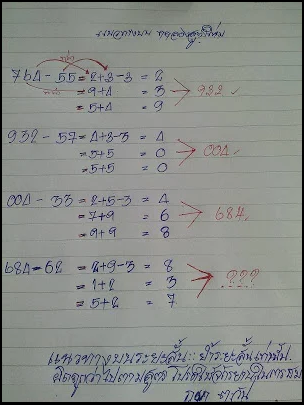 แนวทางบน ทดลองสูตรใหม่
764 - 55 = 2+3-3 = 2
= 9+4 = 3
= 5+4 = 9
932 ✓
932 - 57 = 4+3-3 = 4
= 5+5 = 0
= 5+5 = 0
004 ✓
004 - 33 = 2+5-3 = 4
= 7+9 = 6
= 9+9 = 8
684 ✓
684 - 62 = 2+9-3 = 8
= 1+2 = 3
= 5+2 = 7
???
แนวทางบนระยะสั้น :: ย้ำระยะสั้นเท่านั้น
ผิดถูกว่าไปตามสูตร โปรดใช้วิจารณญาณในการชม